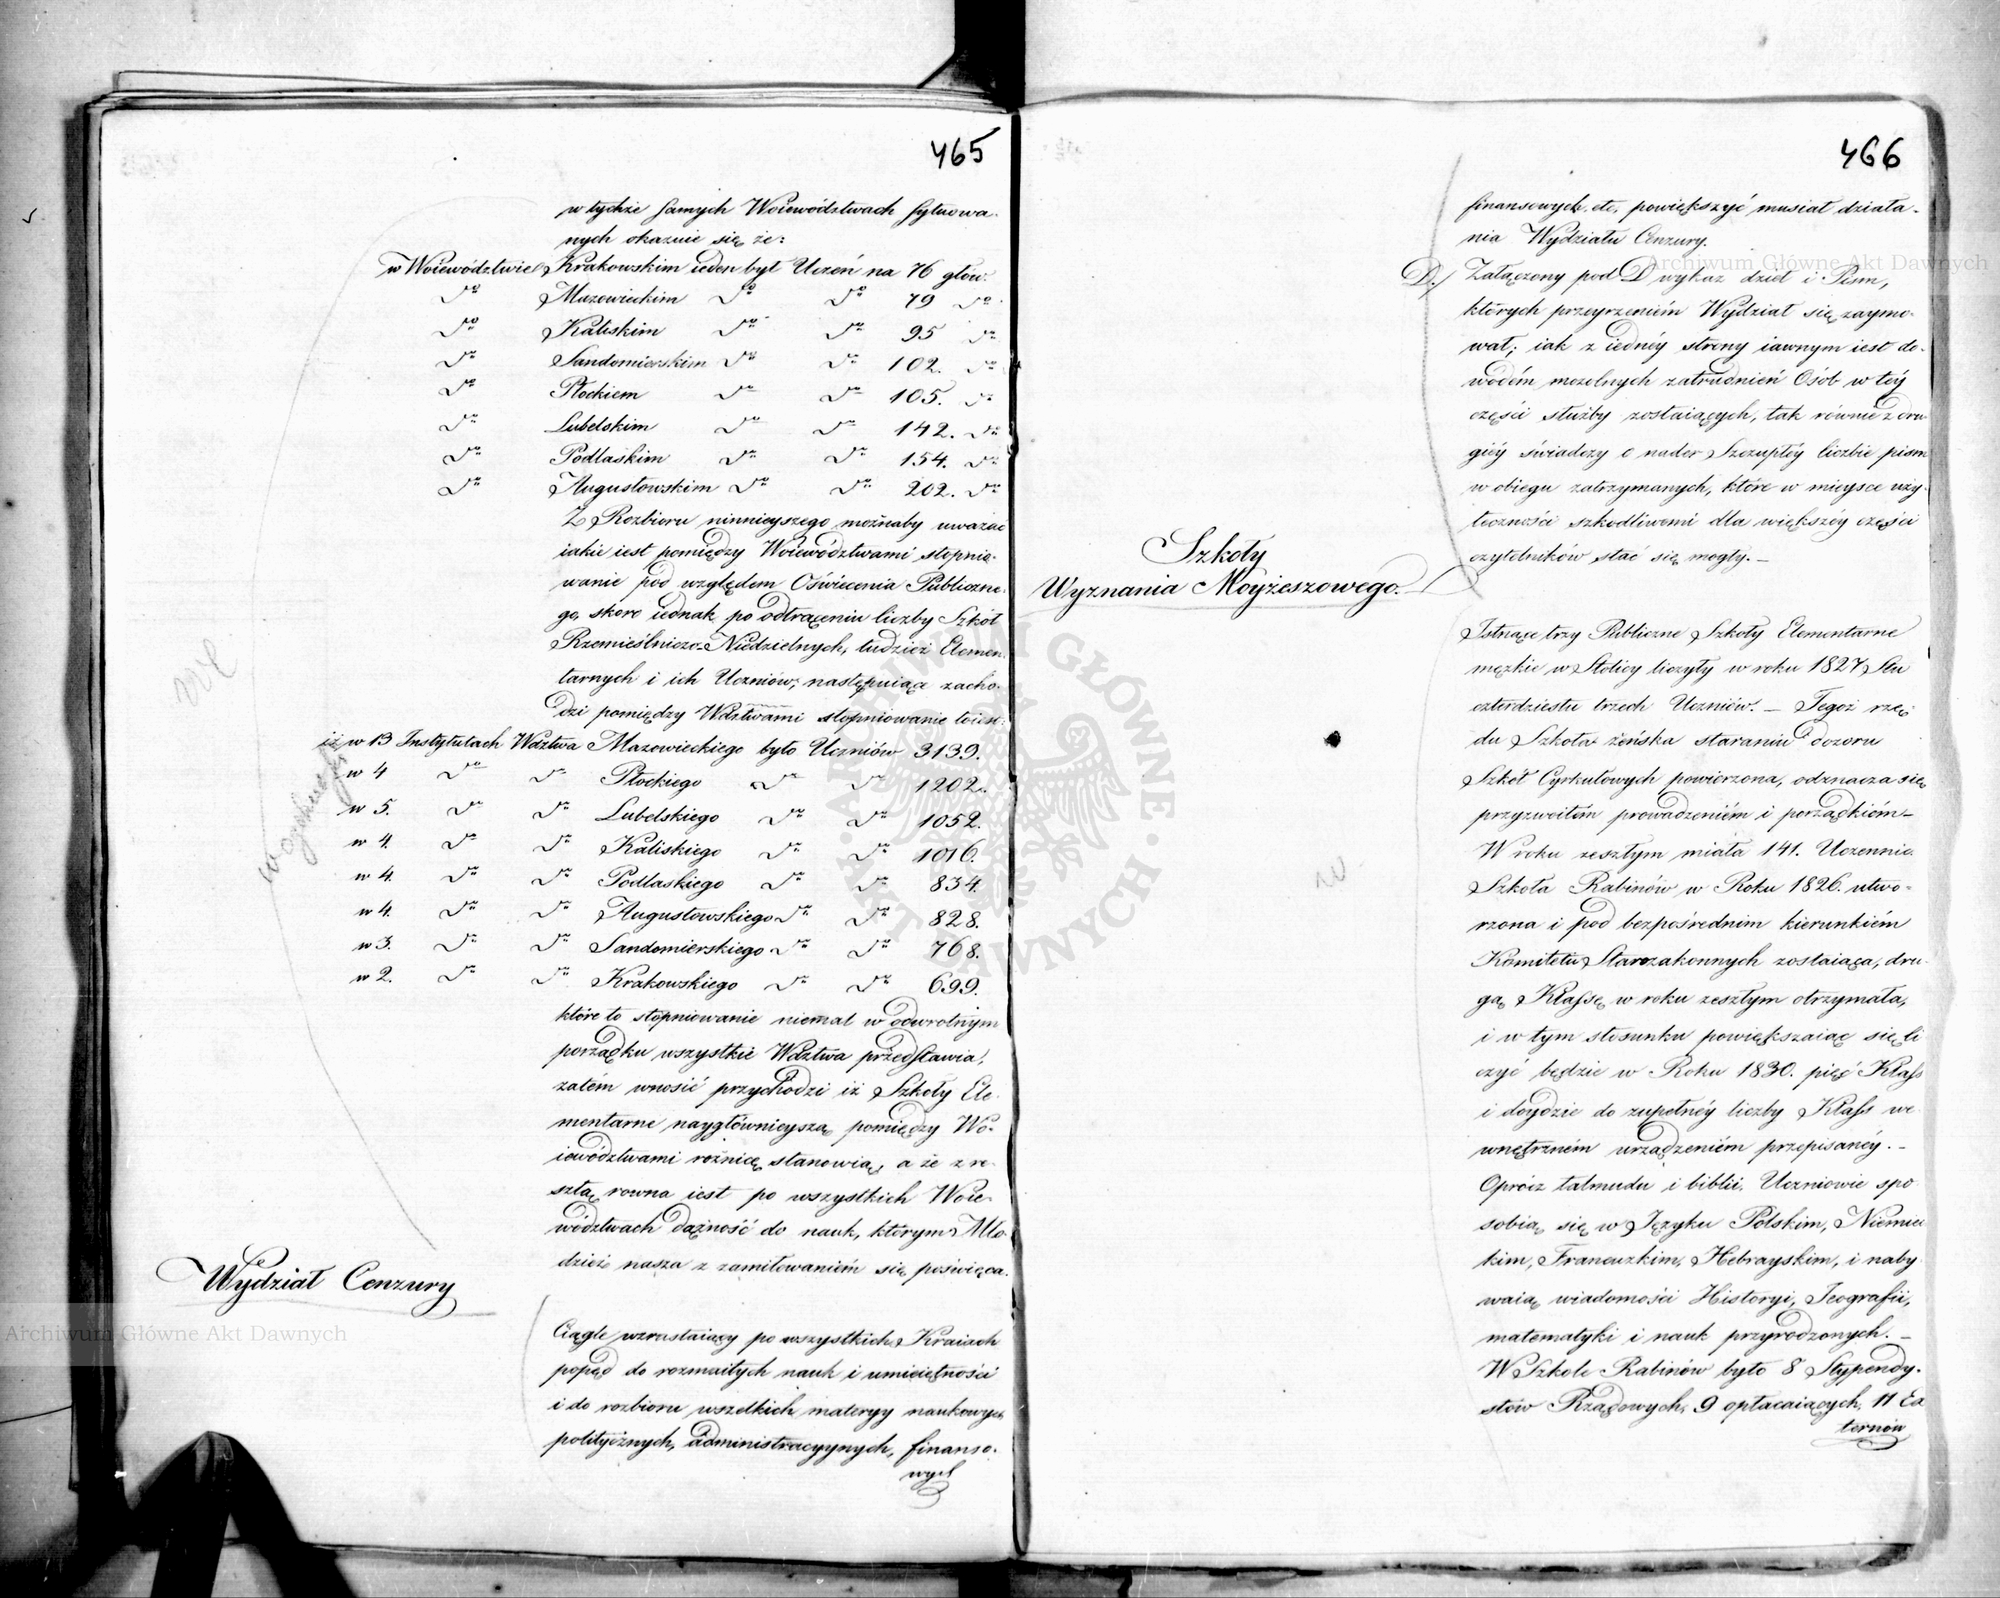 465
w tychże samych Woiewództwach sytuowa-
nych okazuie się że:
w Woiewództwie Krakowskim ieden był Uczeń na 76 głów.
do Mazowieckim do do 79 do
do Kaliskim do do 95 do
do Sandomierskim do do 102. do
do Płockiem do do 105. do
do Lubelskim do do 142. do
do Podlaskim do do 154. do
do Augustowskim do do 202. do
Z Rozbioru ninnieyszego możnaby uważać
iakie iest pomiędzy Woiewództwami stopnio-
wanie pod względem Oświecenia Publiczne-
go, skoro iednak po odtrąceniu liczby Szkół
Rzemieślniczo-Niedzielnych, tudzież Elemen-
tarnych i ich Uczniów, następuiące zacho-
dzi pomiędzy Wdztwami stopniowanie toiest:
iż w 13 Instytutach Wdztwa Mazowieckiego było Uczniów 3139.
w 4 do do Płockiego do do 1202.
w 5. do do Lubelskiego do do 1052.
w 4. do do Kaliskiego do do 1016.
w 4. do do Podlaskiego do do 834.
w 4. do do Augustowskiego do do 828.
w 3. do do Sandomierskiego do do 768.
w 2. do do Krakowskiego do do 699.
które to stopniowanie niemal w odwrotnym
porządku wszystkie Wdztwa przedstawia,
zatém wnosić przychodzi iż Szkoły Ele-
mentarne naygłównieyszą pomiędzy Wo-
iewództwami rożnicę stanowią, a że z re-
sztą rowna iest po wszystkich Woie-
wództwach dążność do nauk, którym Mło-
dzież nasza z zamiłowaniem się poświęca.
Wydział Cenzury
Ciągle wzrastaiący po wszystkich Kraiach
popęd do rozmaitych nauk i umieiętności
i do rozbioru wszelkich materyy naukowych
politycznych, administracyynych, finanso-
wych
466
finansowych etc, powiększyć musiał działa-
nia Wydziału Cenzury.
D./ Załączony pod D wykaz dzieł i Pism,
których przeyrzeniém Wydział się zaymo-
wał; iak z iednéy strony iawnym iest do-
wodém mozolnych zatrudnień Osób w téy
części służby zostaiących, tak równie z dru
giéy świadczy o nader Szczupłéy liczbie pism
w obiegu zatrzymanych, które w mieysce uży-
teczności szkodliwemi dla większéy części
czytelników stać się mogły. —
Szkoły
Wyznania Moyżeszowego.
Istnące trzy Publiczne Szkoły Elementarne
męzkie w Stolicy liczyły w roku 1827 Stu
czterdziestu trzech Uczniów. — Tegoż rzę-
du Szkoła żeńska staraniu dozoru
Szkół Cyrkułowych powierzona, odznacza się
przyzwoitém prowadzeniém i porządkiém —
W roku zeszłym miała 141. Uczennic.
Szkoła Rabinów w Roku 1826. utwo-
rzona i pod bezpośrednim kierunkiém
Komitetu Starozakonnych zostaiąca, dru-
gą Klassę w roku zeszłym otrzymała,
i w tym stosunku powiększaiąc się li
czyć będzie w Roku 1830. pięć Klass
i doydzie do zupełnéy liczby Klass we
wnętrzném urządzeniém przepisanéy. —
Oprócz talmudu i biblii, Uczniowie spo-
sobią się w Języku Polskim, Niemiec
kim, Francuzkim, Hebrayskim, i naby-
waią wiadomości Historyi, Jeografii,
matematyki i nauk przyrodzonych. —
W Szkole Rabinów było 8 Stypendy-
stów Rządowych, 9 opłacaiących, 11 Ex
ternów
Archiwum Główne Akt Dawnych
Archiwum Główne Akt Dawnych
ARCHIWUM GŁÓWNE AKT DAWNYCH